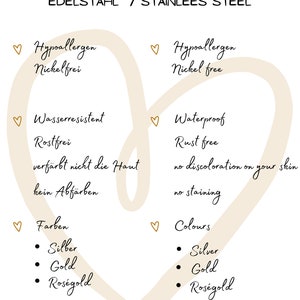 EDELSTAHL / STAINLEES STEEL
Hypoallergen
Nickelfrei
Wasserresistent
Rostfrei
verfärbt nicht die Haut
kein Abfärben
Farben
• Silber
• Gold
• Roségold
Hypoallergen
Nickel free
Waterproof
Rust free
no discoloration on your skin
no staining
Colours
• Silver
• Gold
• Roségold